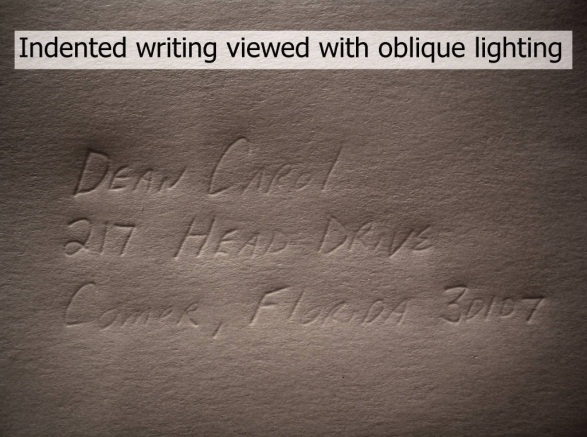 Indented writing viewed with oblique lighting
DEAN CAROL
217 HEAD DRIVE
COMER, FLORIDA 30107